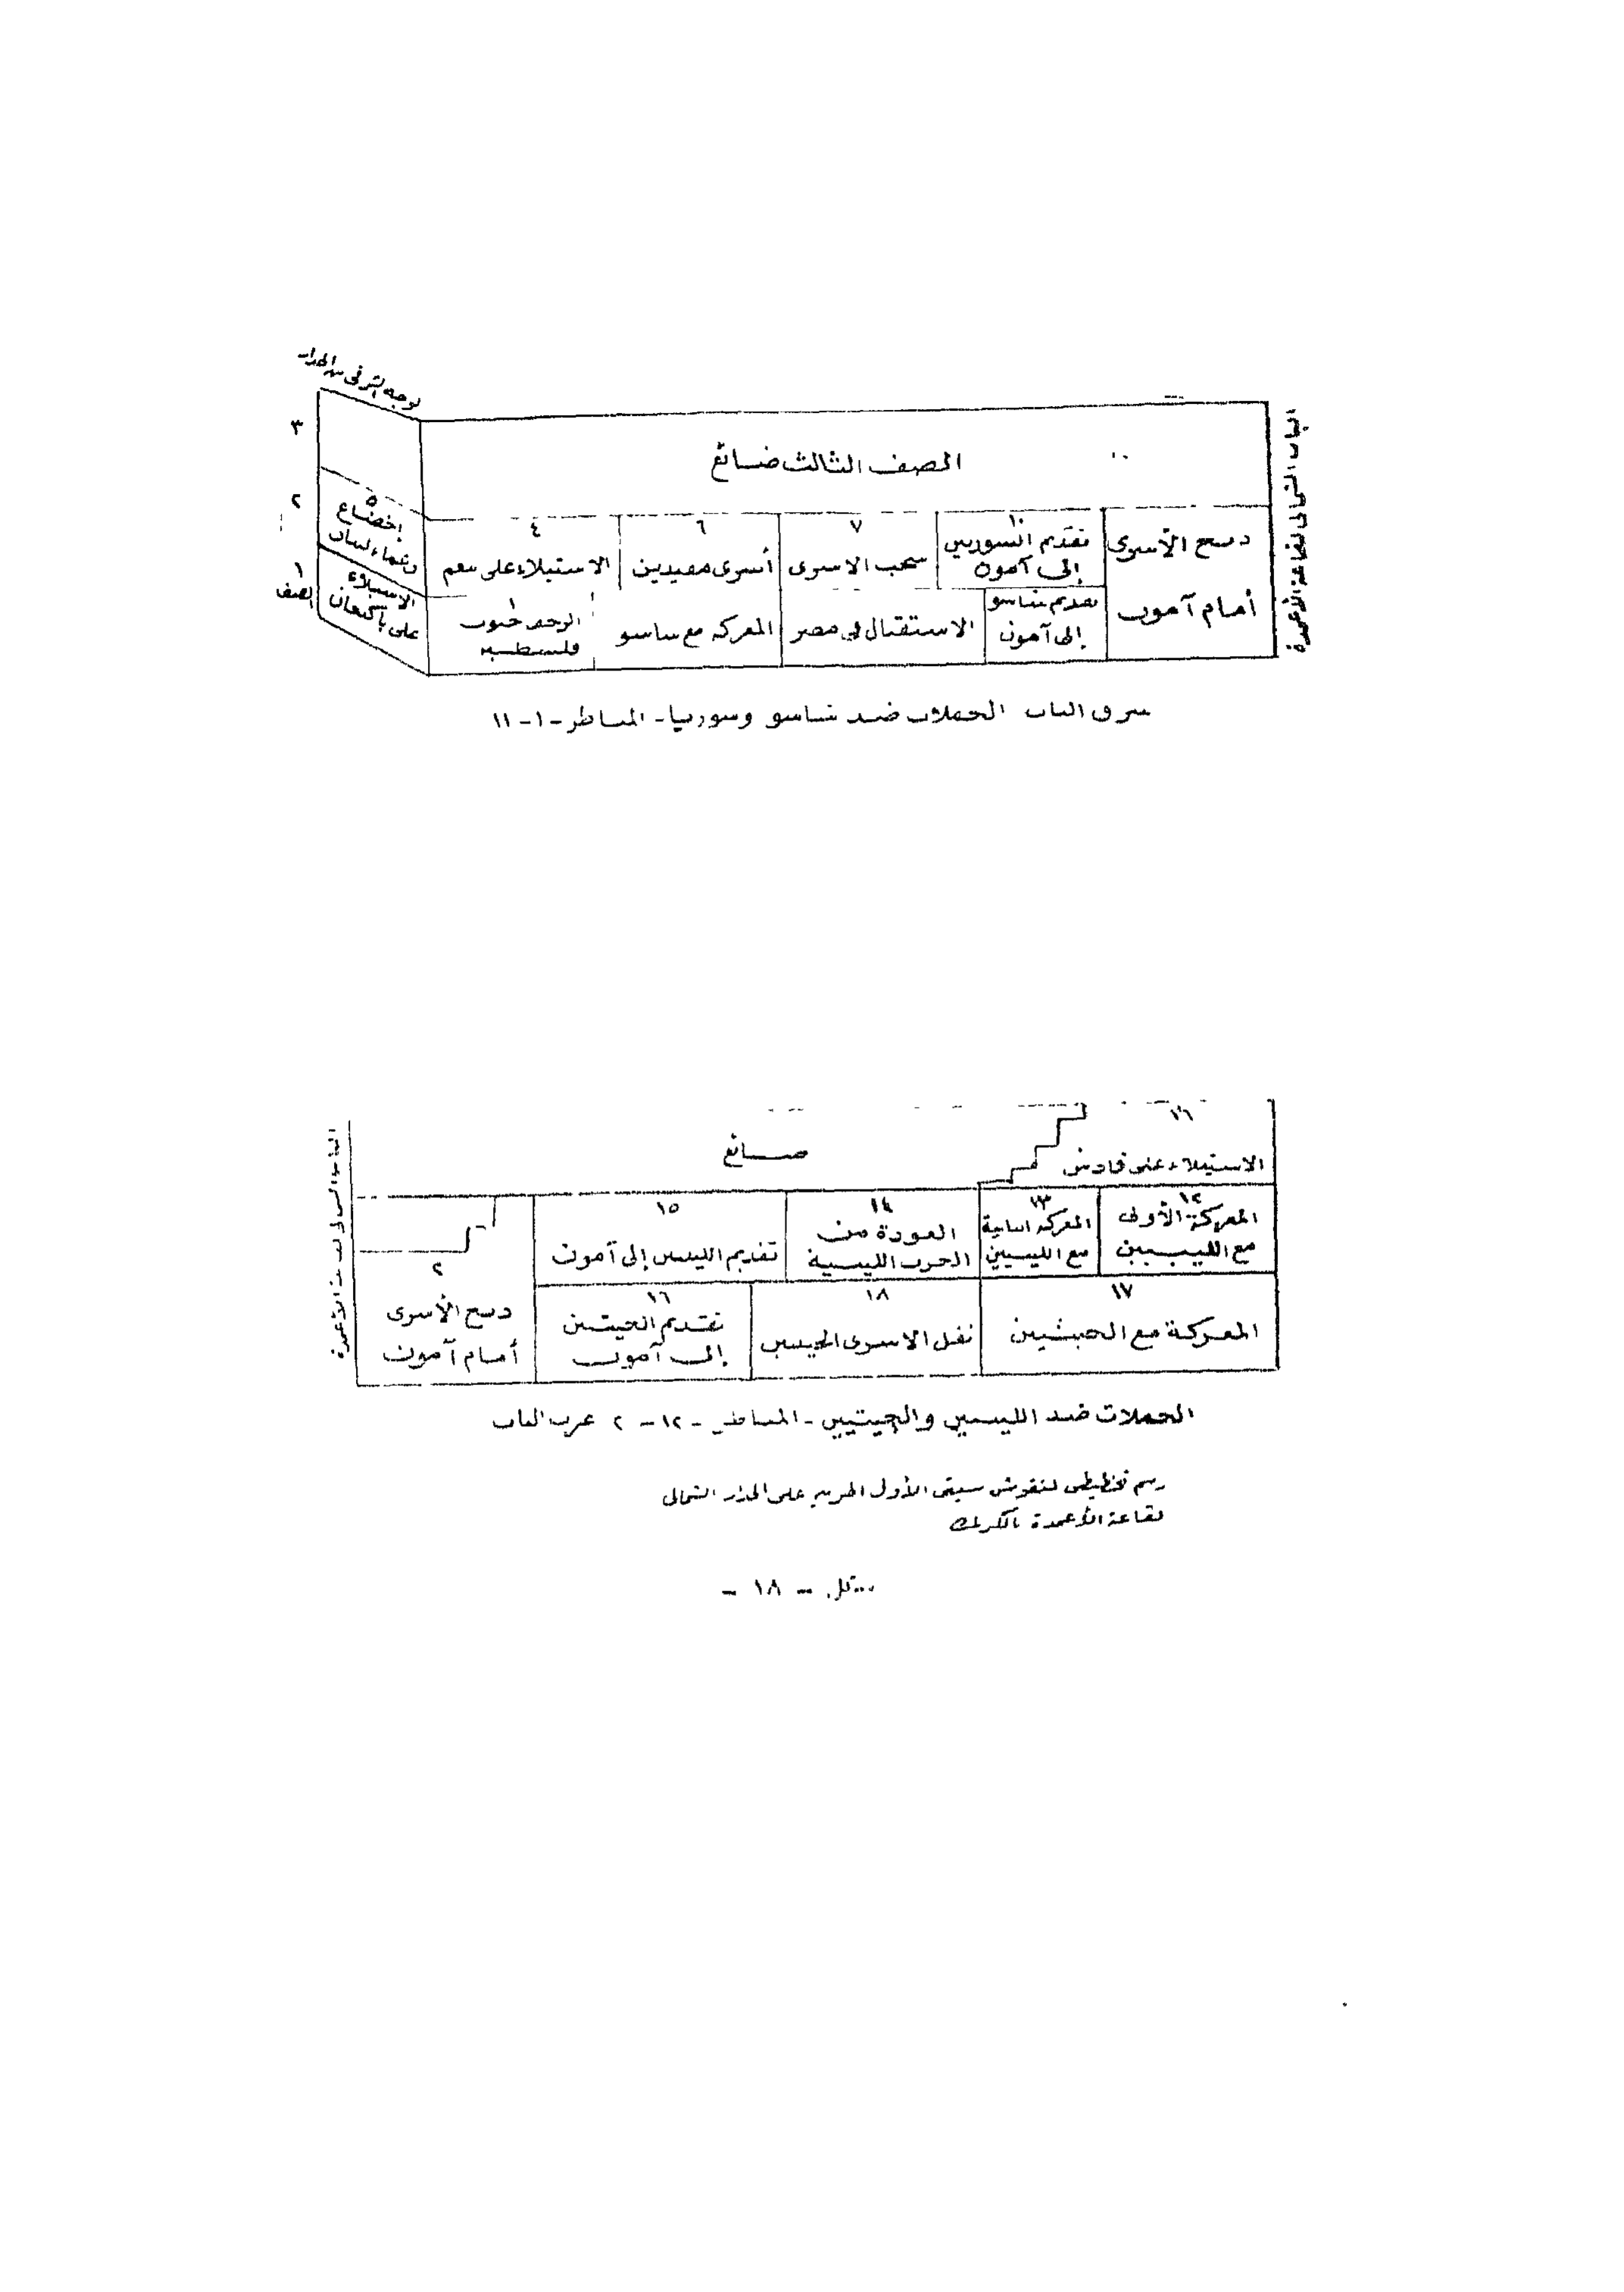 الوجه الشرقى من الجدار
الباب الشمالى لقاعة الأعمدة
٣
الصف الثالث ضائع
٢
٥
إخضاع
زعماء لبنان
٤
الاستيلاء على ينعم
٦
أسرى مقيدين
٧
سحب الاسرى
١٠
تقديم السوريين
إلى آمون
ذبح الأسرى
أمام آمون
١
الصف
الاستيلاء
على باكنعان
١
الزحف جنوب
فلسطين
المعركة مع شاسو
الاستقبال في مصر
تقديم شاسو
إلى آمون
شرق الباب الحملات ضد شاسو وسوريا - المناظر - ١ - ١١
ضائع
الاستيلاء على قادش
١٢
المعركة الأولى
مع الليبيين
١٣
المعركة الثانية
مع الليبيين
١٤
العودة من
الحرب الليبية
١٥
تقديم الليبيين إلى آمون
٢
ذبح الأسرى
أمام آمون
١٧
المعركة مع الحيثيين
١٨
نقل الاسرى الحيثيين
١٦
تقديم الحيثيين
إلى آمون
الحملات ضد الليبيين والحيثيين - المناظر - ١٢ - ٢ غرب الباب
رسم تخطيطى لنقوش سيتى الأول الحربية على الجدار الشمالى
لقاعة الأعمدة بالكرنك
شكل - ١٨ -